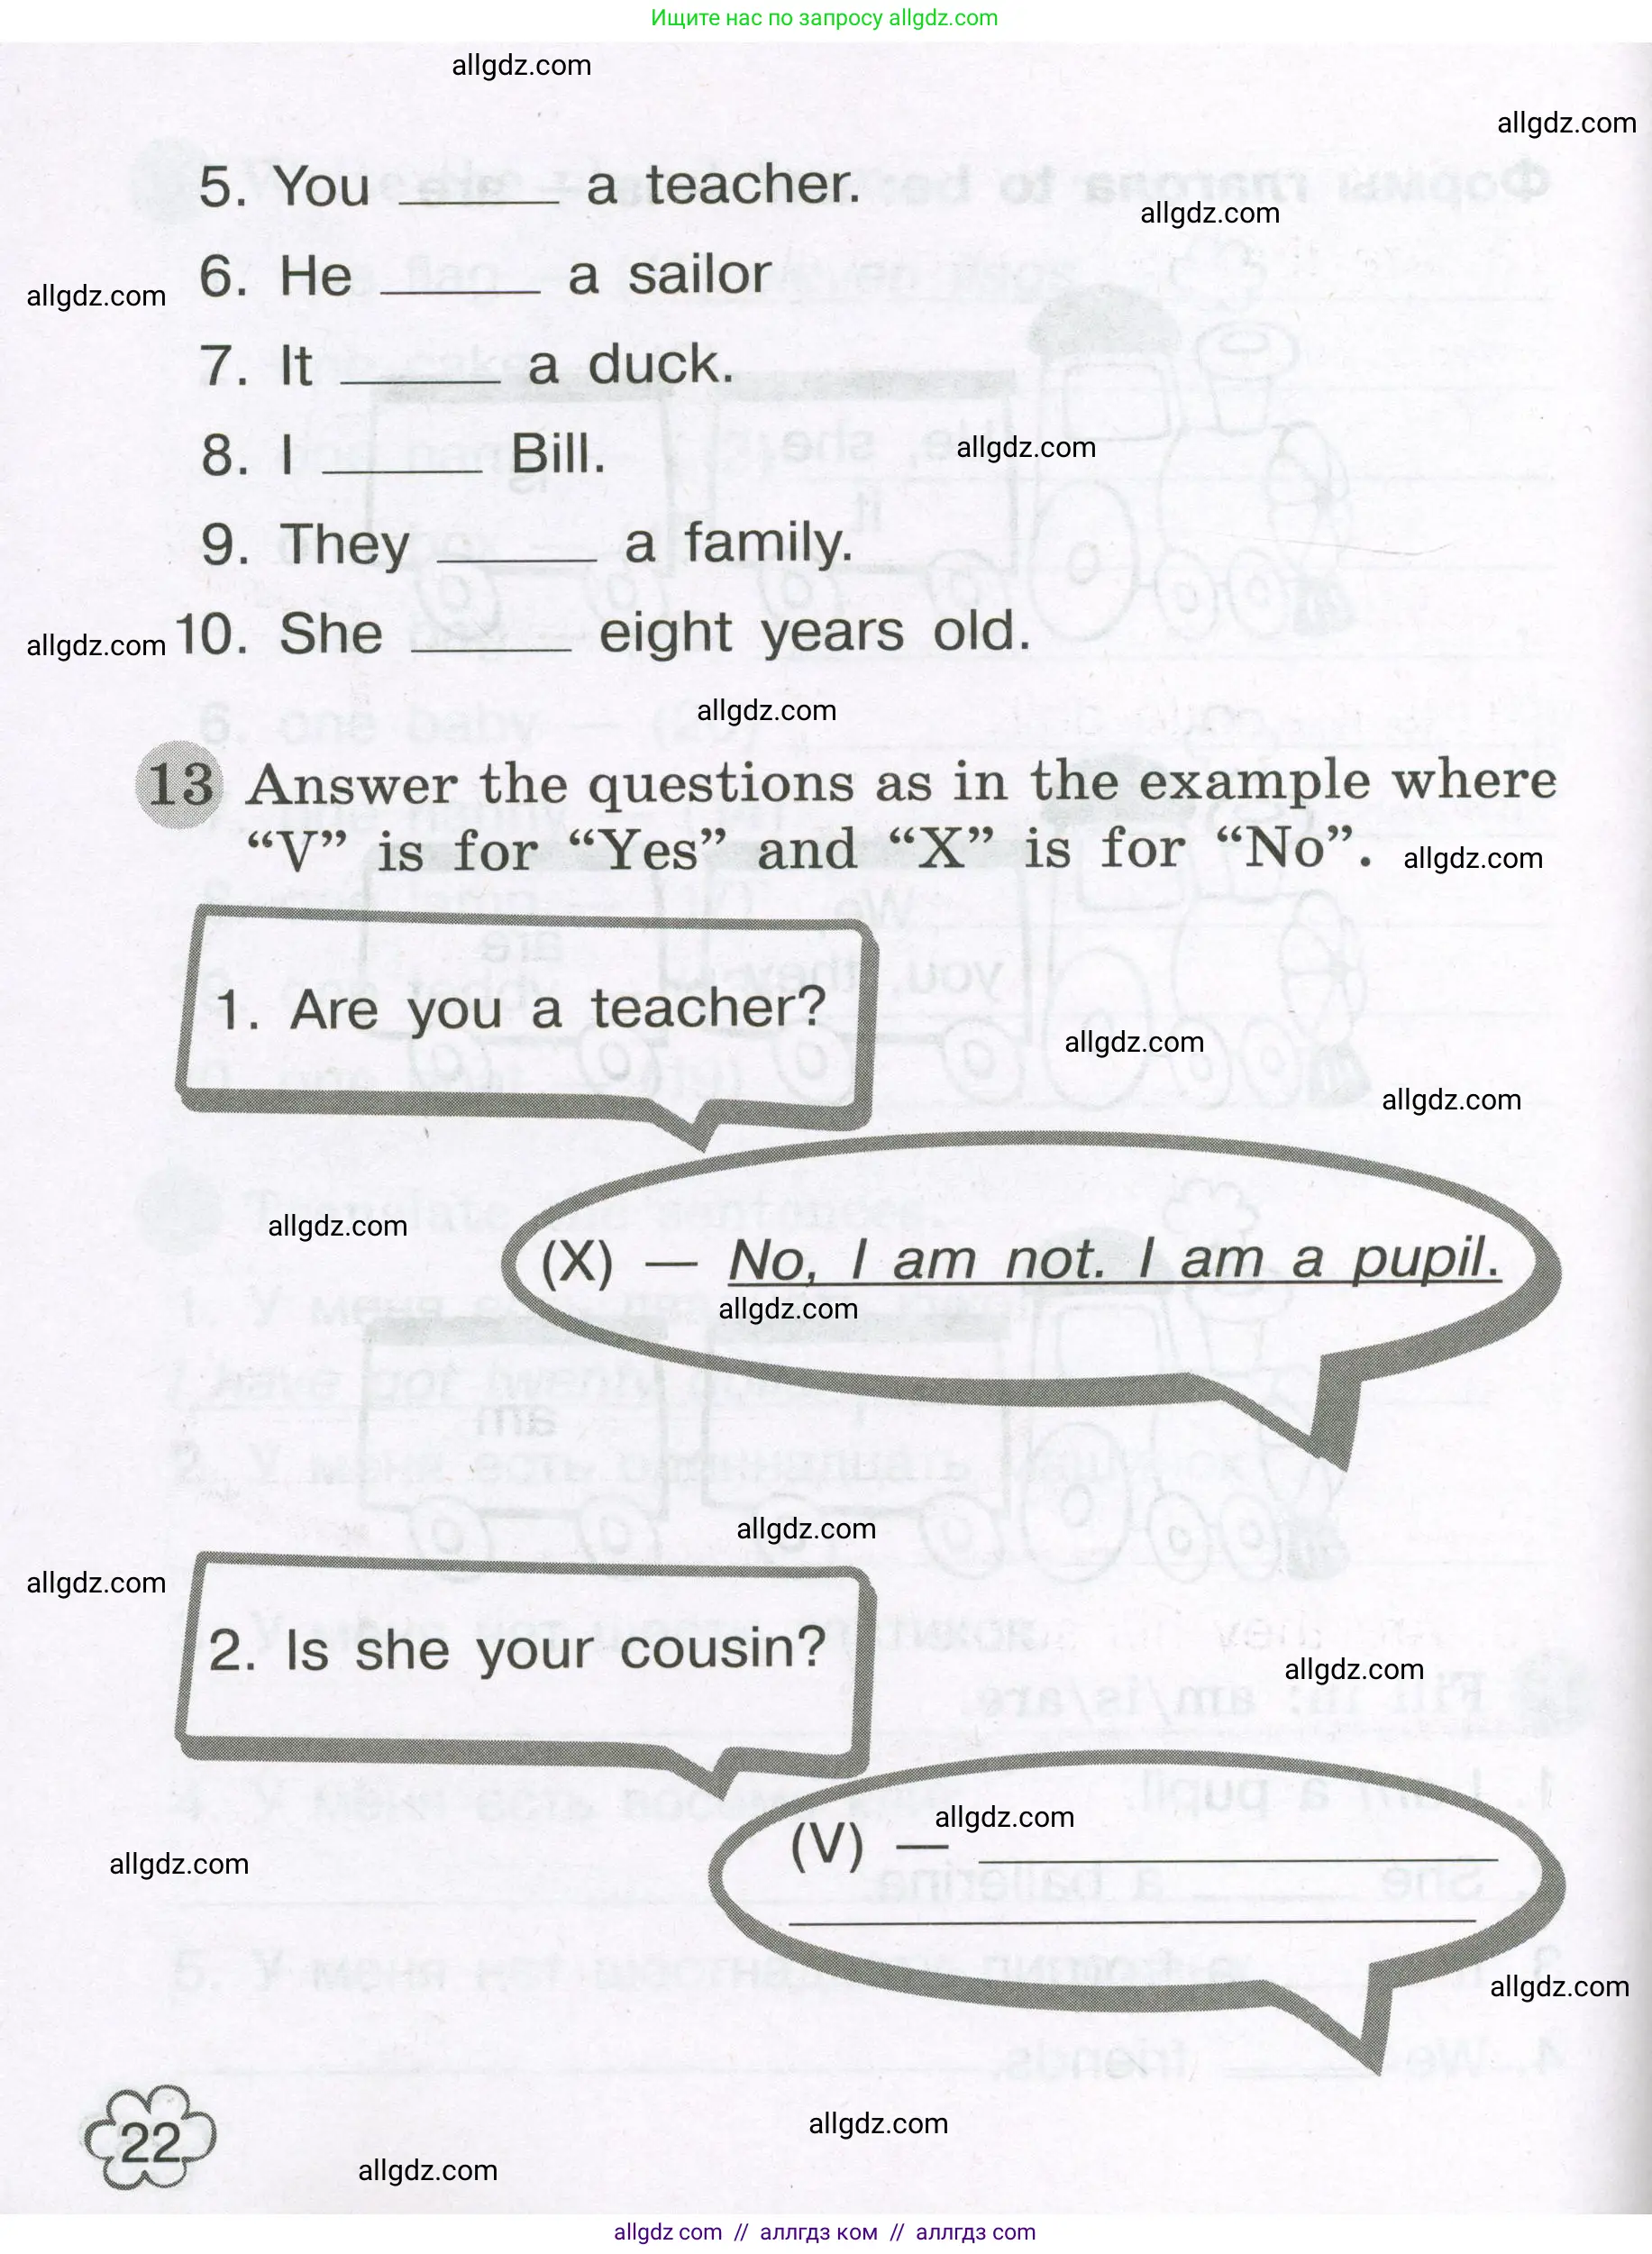 Ищите нас по запросу allgdz.com
allgdz.com
allgdz.com
5. You ______ a teacher.
allgdz.com
6. He ______ a sailor
allgdz.com
7. It ______ a duck.
8. I ______ Bill.
allgdz.com
9. They ______ a family.
10. She ______ eight years old.
allgdz.com
allgdz.com
13 Answer the questions as in the example where
“V” is for “Yes” and “X” is for “No”.
allgdz.com
1. Are you a teacher?
allgdz.com
allgdz.com
allgdz.com
(X) — No, I am not. I am a pupil.
allgdz.com
allgdz.com
allgdz.com
2. Is she your cousin?
allgdz.com
allgdz.com
(V) — ______
allgdz.com
allgdz.com
22
allgdz.com
allgdz.com
allgdz com // аллгдз ком // аллгдз com